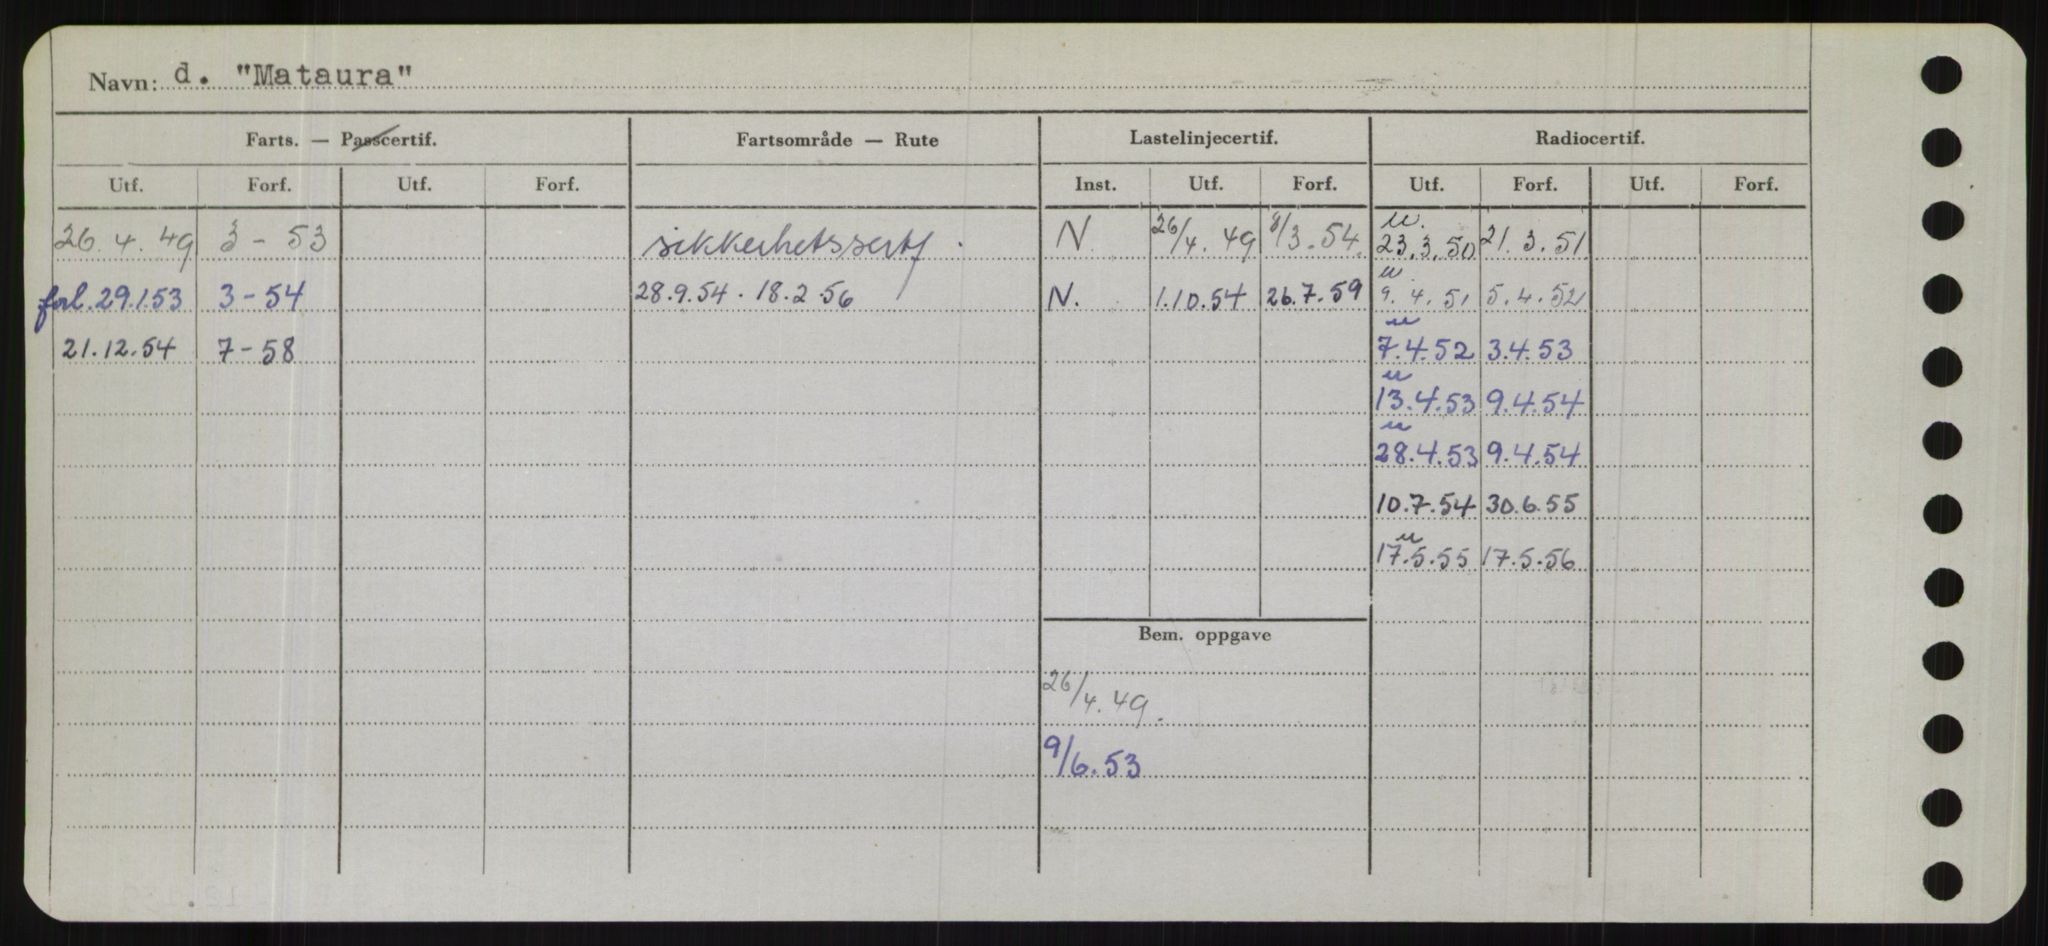 Navn: d. "Mataura"
Farts. — Passcertif. Fartsområde — Rute Lastelinjecertif. Radiocertif.
Utf. Forf. Utf. Forf. Inst. Utf. Forf. Utf. Forf. Utf. Forf.
26.4.49 3 - 53 sikkerhetssertf. N. 26/4.49 8/3.54. u. 23.3.50 21.3.51
forl. 29.1.53 3 - 54 28.9.54 . 18.2.56 N. 1.10.54 26.7.59 u 9.4.51 5.4.52
21.12.54 7 - 58 u 7.4.52 3.4.53
u 13.4.53 9.4.54
u 28.4.53 9.4.54
10.7.54 30.6.55
u 17.5.55 17.5.56
Bem. oppgave
26/4.49.
9/6.53